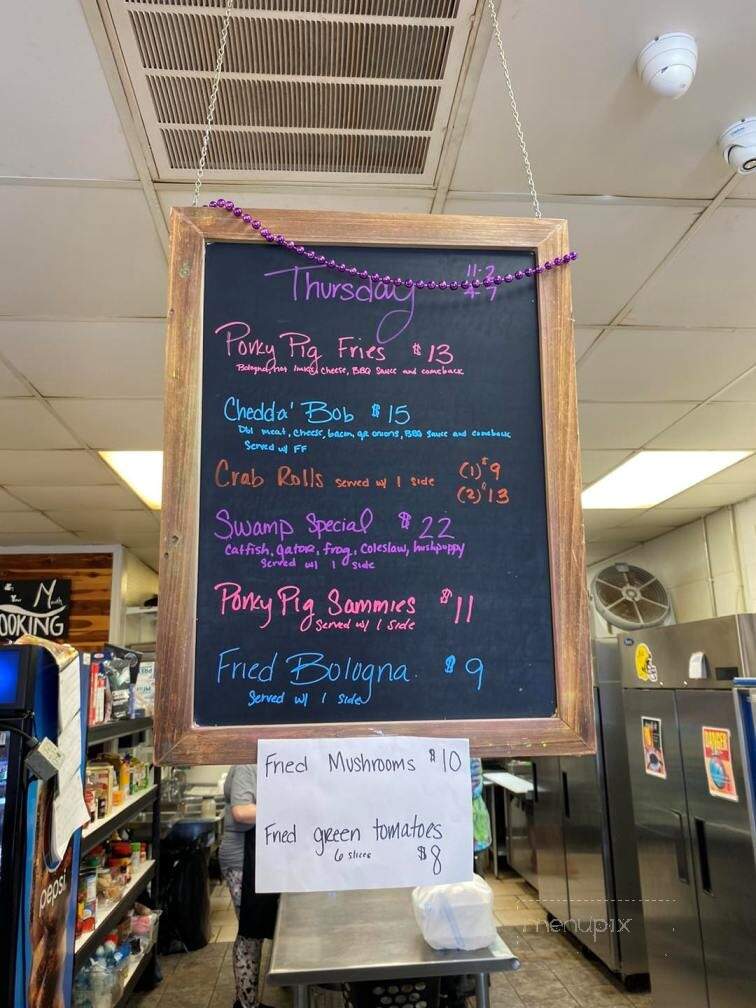 Thursday 11-2
4-7
Porky Pig Fries $13
Bologna, hot links, cheese, BBQ Sauce and comeback
Chedda' Bob $15
Dbl meat, cheese, bacon, gr onions, BBQ Sauce and comeback
Served w/ FF
Crab Rolls served w/ 1 side (1) $9
(2) $13
Swamp Special $22
catfish, gator, frog, coleslaw, hushpuppy
Served w/ 1 side
Porky Pig Sammies $11
Served w/ 1 side
Fried Bologna $9
Served w/ 1 side
Fried Mushrooms $10
Fried green tomatoes
6 slices $8
OOKING
pepsi
DANGER
menupix